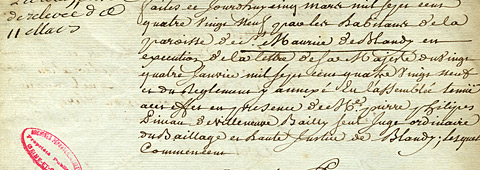 faites ce jourd'huy cinq mars mil sept cent
quatre vingt neuf par les habitans de la
paroisse de St. Maurice de Blandy en
execution de la lettre de sa Majesté du vingt
quatre Janvier mil sept cent quatre vingt neuf
et du Reglement y annexé en Lassemblée tenüe
a cet effet en presence de Me. pierre
de Villeneuve Bailly seul Juge ordinaire
du Bailliage et haute Justice de Blandy; lesquels
Commencent
11 Mars